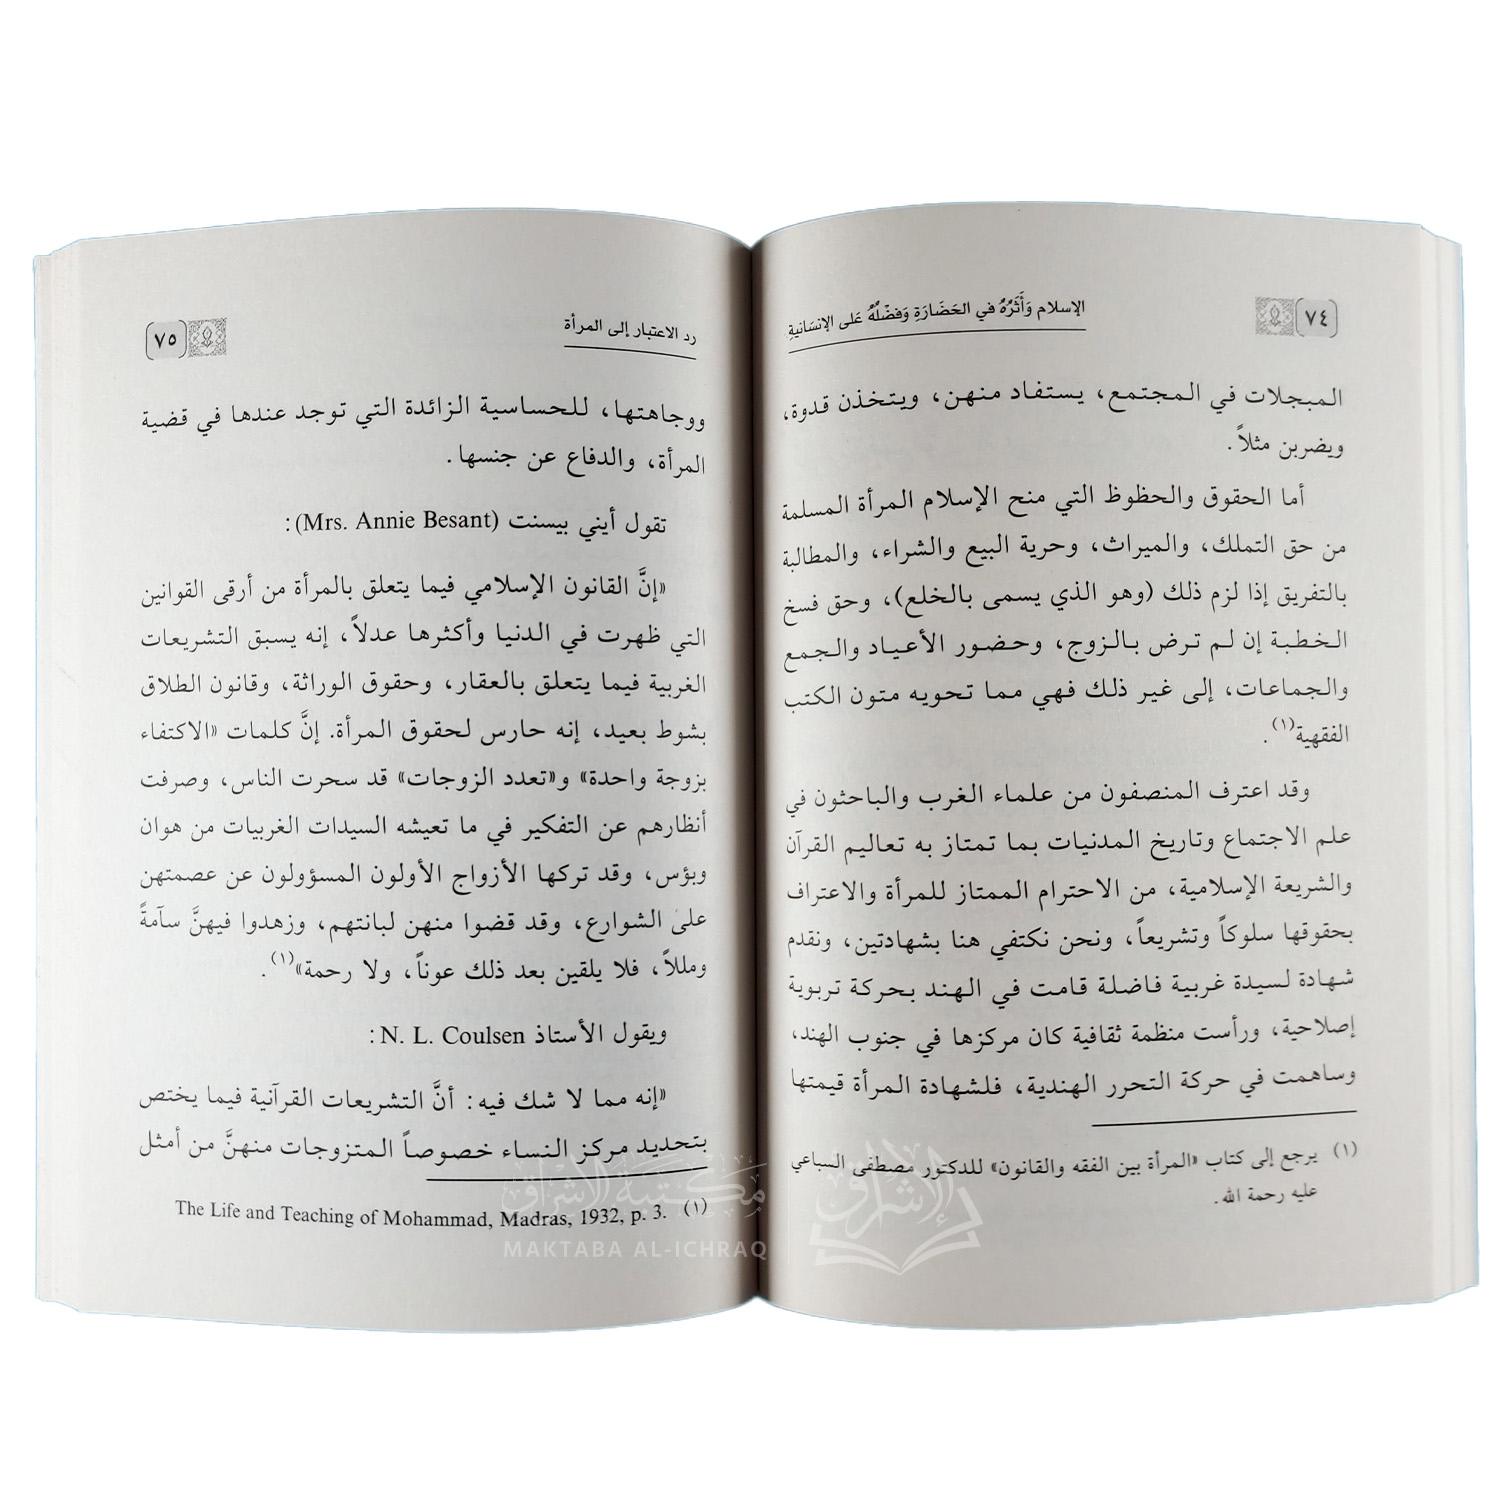 ٧٤
الإسلام وَأَثَرُهُ في الحَضَارَةِ وَفَضْلُهُ عَلى الإنسَانيةِ
المبجلات في المجتمع، يستفاد منهن، ويتخذن قدوة،
ويضربن مثلاً.
أما الحقوق والحظوظ التي منح الإسلام المرأة المسلمة
من حق التملك، والميراث، وحرية البيع والشراء، والمطالبة
بالتفريق إذا لزم ذلك (وهو الذي يسمى بالخلع)، وحق فسخ
الخطبة إن لم ترض بالزوج، وحضور الأعياد والجمع
والجماعات، إلى غير ذلك فهي مما تحويه متون الكتب
الفقهية(١).
وقد اعترف المنصفون من علماء الغرب والباحثون في
علم الاجتماع وتاريخ المدنيات بما تمتاز به تعاليم القرآن
والشريعة الإسلامية، من الاحترام الممتاز للمرأة والاعتراف
بحقوقها سلوكاً وتشريعاً، ونحن نكتفي هنا بشهادتين، ونقدم
شهادة لسيدة غربية فاضلة قامت في الهند بحركة تربوية
إصلاحية، ورأست منظمة ثقافية كان مركزها في جنوب الهند،
وساهمت في حركة التحرر الهندية، فلشهادة المرأة قيمتها
(١) يرجع إلى كتاب «المرأة بين الفقه والقانون» للدكتور مصطفى السباعي
عليه رحمة الله.
رد الاعتبار إلى المرأة
٧٥
ووجاهتها، للحساسية الزائدة التي توجد عندها في قضية
المرأة، والدفاع عن جنسها.
تقول أيني بيسنت (Mrs. Annie Besant):
«إنَّ القانون الإسلامي فيما يتعلق بالمرأة من أرقى القوانين
التي ظهرت في الدنيا وأكثرها عدلاً، إنه يسبق التشريعات
الغربية فيما يتعلق بالعقار، وحقوق الوراثة، وقانون الطلاق
بشوط بعيد، إنه حارس لحقوق المرأة. إنَّ كلمات «الاكتفاء
بزوجة واحدة» و«تعدد الزوجات» قد سحرت الناس، وصرفت
أنظارهم عن التفكير في ما تعيشه السيدات الغربيات من هوان
وبؤس، وقد تركها الأزواج الأولون المسؤولون عن عصمتهن
على الشوارع، وقد قضوا منهن لبانتهم، وزهدوا فيهنَّ سآمةً
ومللاً، فلا يلقين بعد ذلك عوناً، ولا رحمة»(١).
ويقول الأستاذ N. L. Coulsen:
«إنه مما لا شك فيه: أنَّ التشريعات القرآنية فيما يختص
بتحديد مركز النساء خصوصاً المتزوجات منهنَّ من أمثل
(١) The Life and Teaching of Mohammad, Madras, 1932, p. 3.
مكتبة الإشراق
MAKTABA AL-ICHRAQ
الإشراق